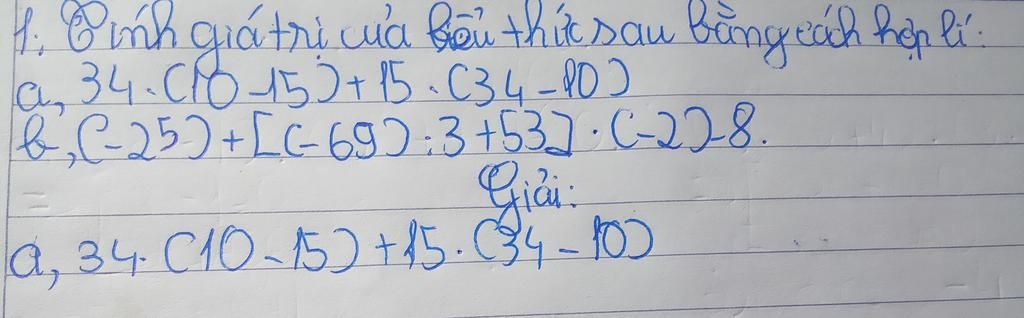 1. Tính giá trị của biểu thức sau bằng cách hợp lí:
a, 34.(10-15)+15.(34-10)
b, (-25)+[(-69):3+53].(-2)-8.
Giải:
a, 34.(10-15)+15.(34-10)